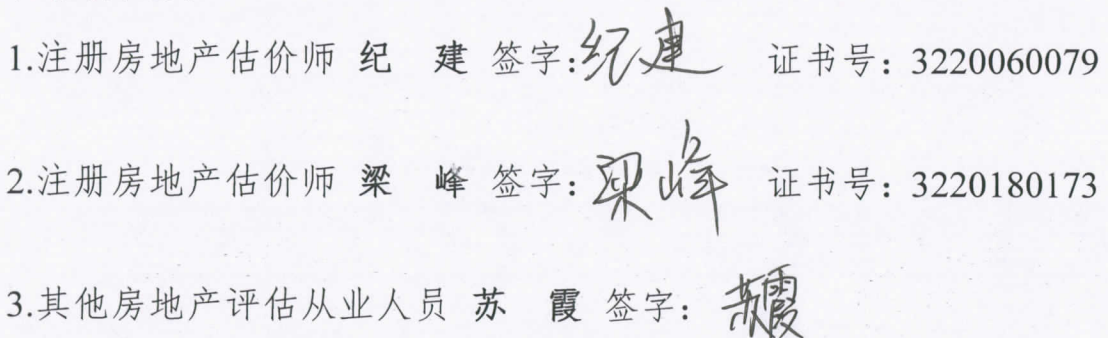 1.注册房地产估价师 纪 建 签字:纪建 证书号：3220060079
2.注册房地产估价师 梁 峰 签字：梁峰 证书号：3220180173
3.其他房地产评估从业人员 苏 霞 签字：苏霞